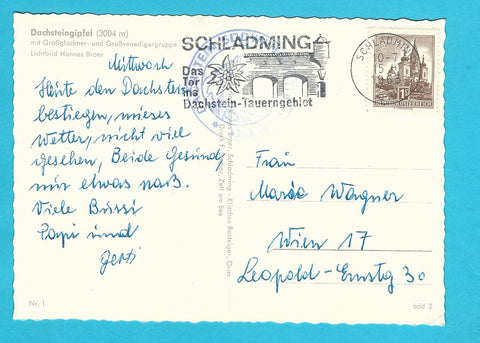 Dachsteingipfel (3004 m)
mit Großglockner- und Großvenedigergruppe
Lichtbild Hannes Broer
Mittwoch
Heute den Dachstein
bestiegen, mieses
Wetter, nicht viel
gesehen, Beide Gesund,
nur etwas naß.
Viele Bussi
Papi und
Gerti
Nr. 1
SCHLADMING
Das
Tor
ins
Dachstein-Tauerngebiet
SCHLADMING
REPUBLIK ÖSTERREICH
Frau
Maria Wagner
Wien 17
Leopold-Ernstg 30
bdd 3